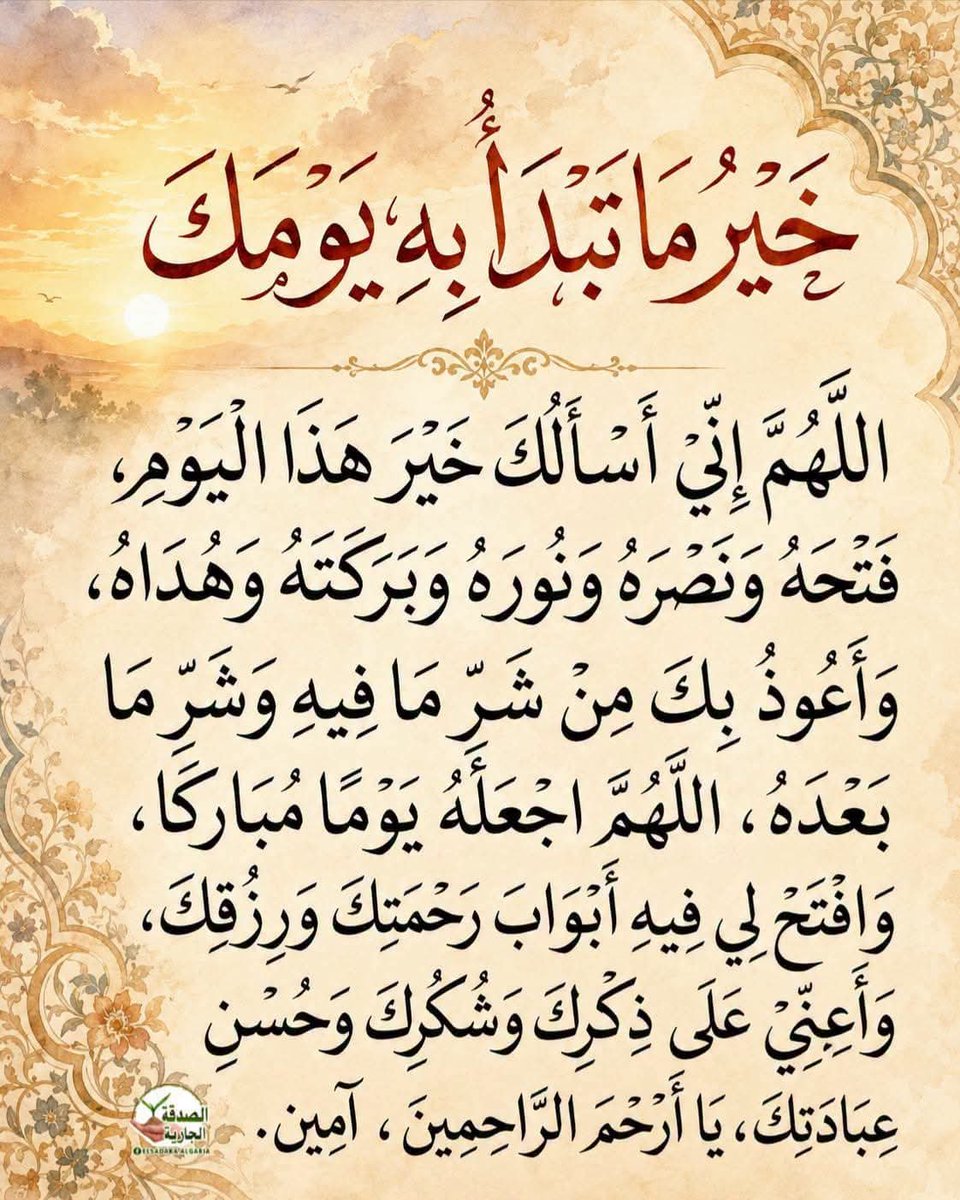 خَيْرُ مَا تَبْدَأُ بِهِ يَوْمَكَ
اللَّهُمَّ إِنِّيْ أَسْأَلُكَ خَيْرَ هَذَا الْيَوْمِ،
فَتْحَهُ وَنَصْرَهُ وَنُورَهُ وَبَرَكَتَهُ وَهُدَاهُ،
وَأَعُوذُ بِكَ مِنْ شَرِّ مَا فِيهِ وَشَرِّ مَا
بَعْدَهُ، اللَّهُمَّ اجْعَلْهُ يَوْمًا مُبَارَكًا،
وَافْتَحْ لِي فِيهِ أَبْوَابَ رَحْمَتِكَ وَرِزْقِكَ،
وَأَعِنِّيْ عَلَى ذِكْرِكَ وَشُكْرِكَ وَحُسْنِ
عِبَادَتِكَ، يَا أَرْحَمَ الرَّاحِمِينَ، آمِين.
الصدقة
الجارية
ELSADAKA ALGARIA